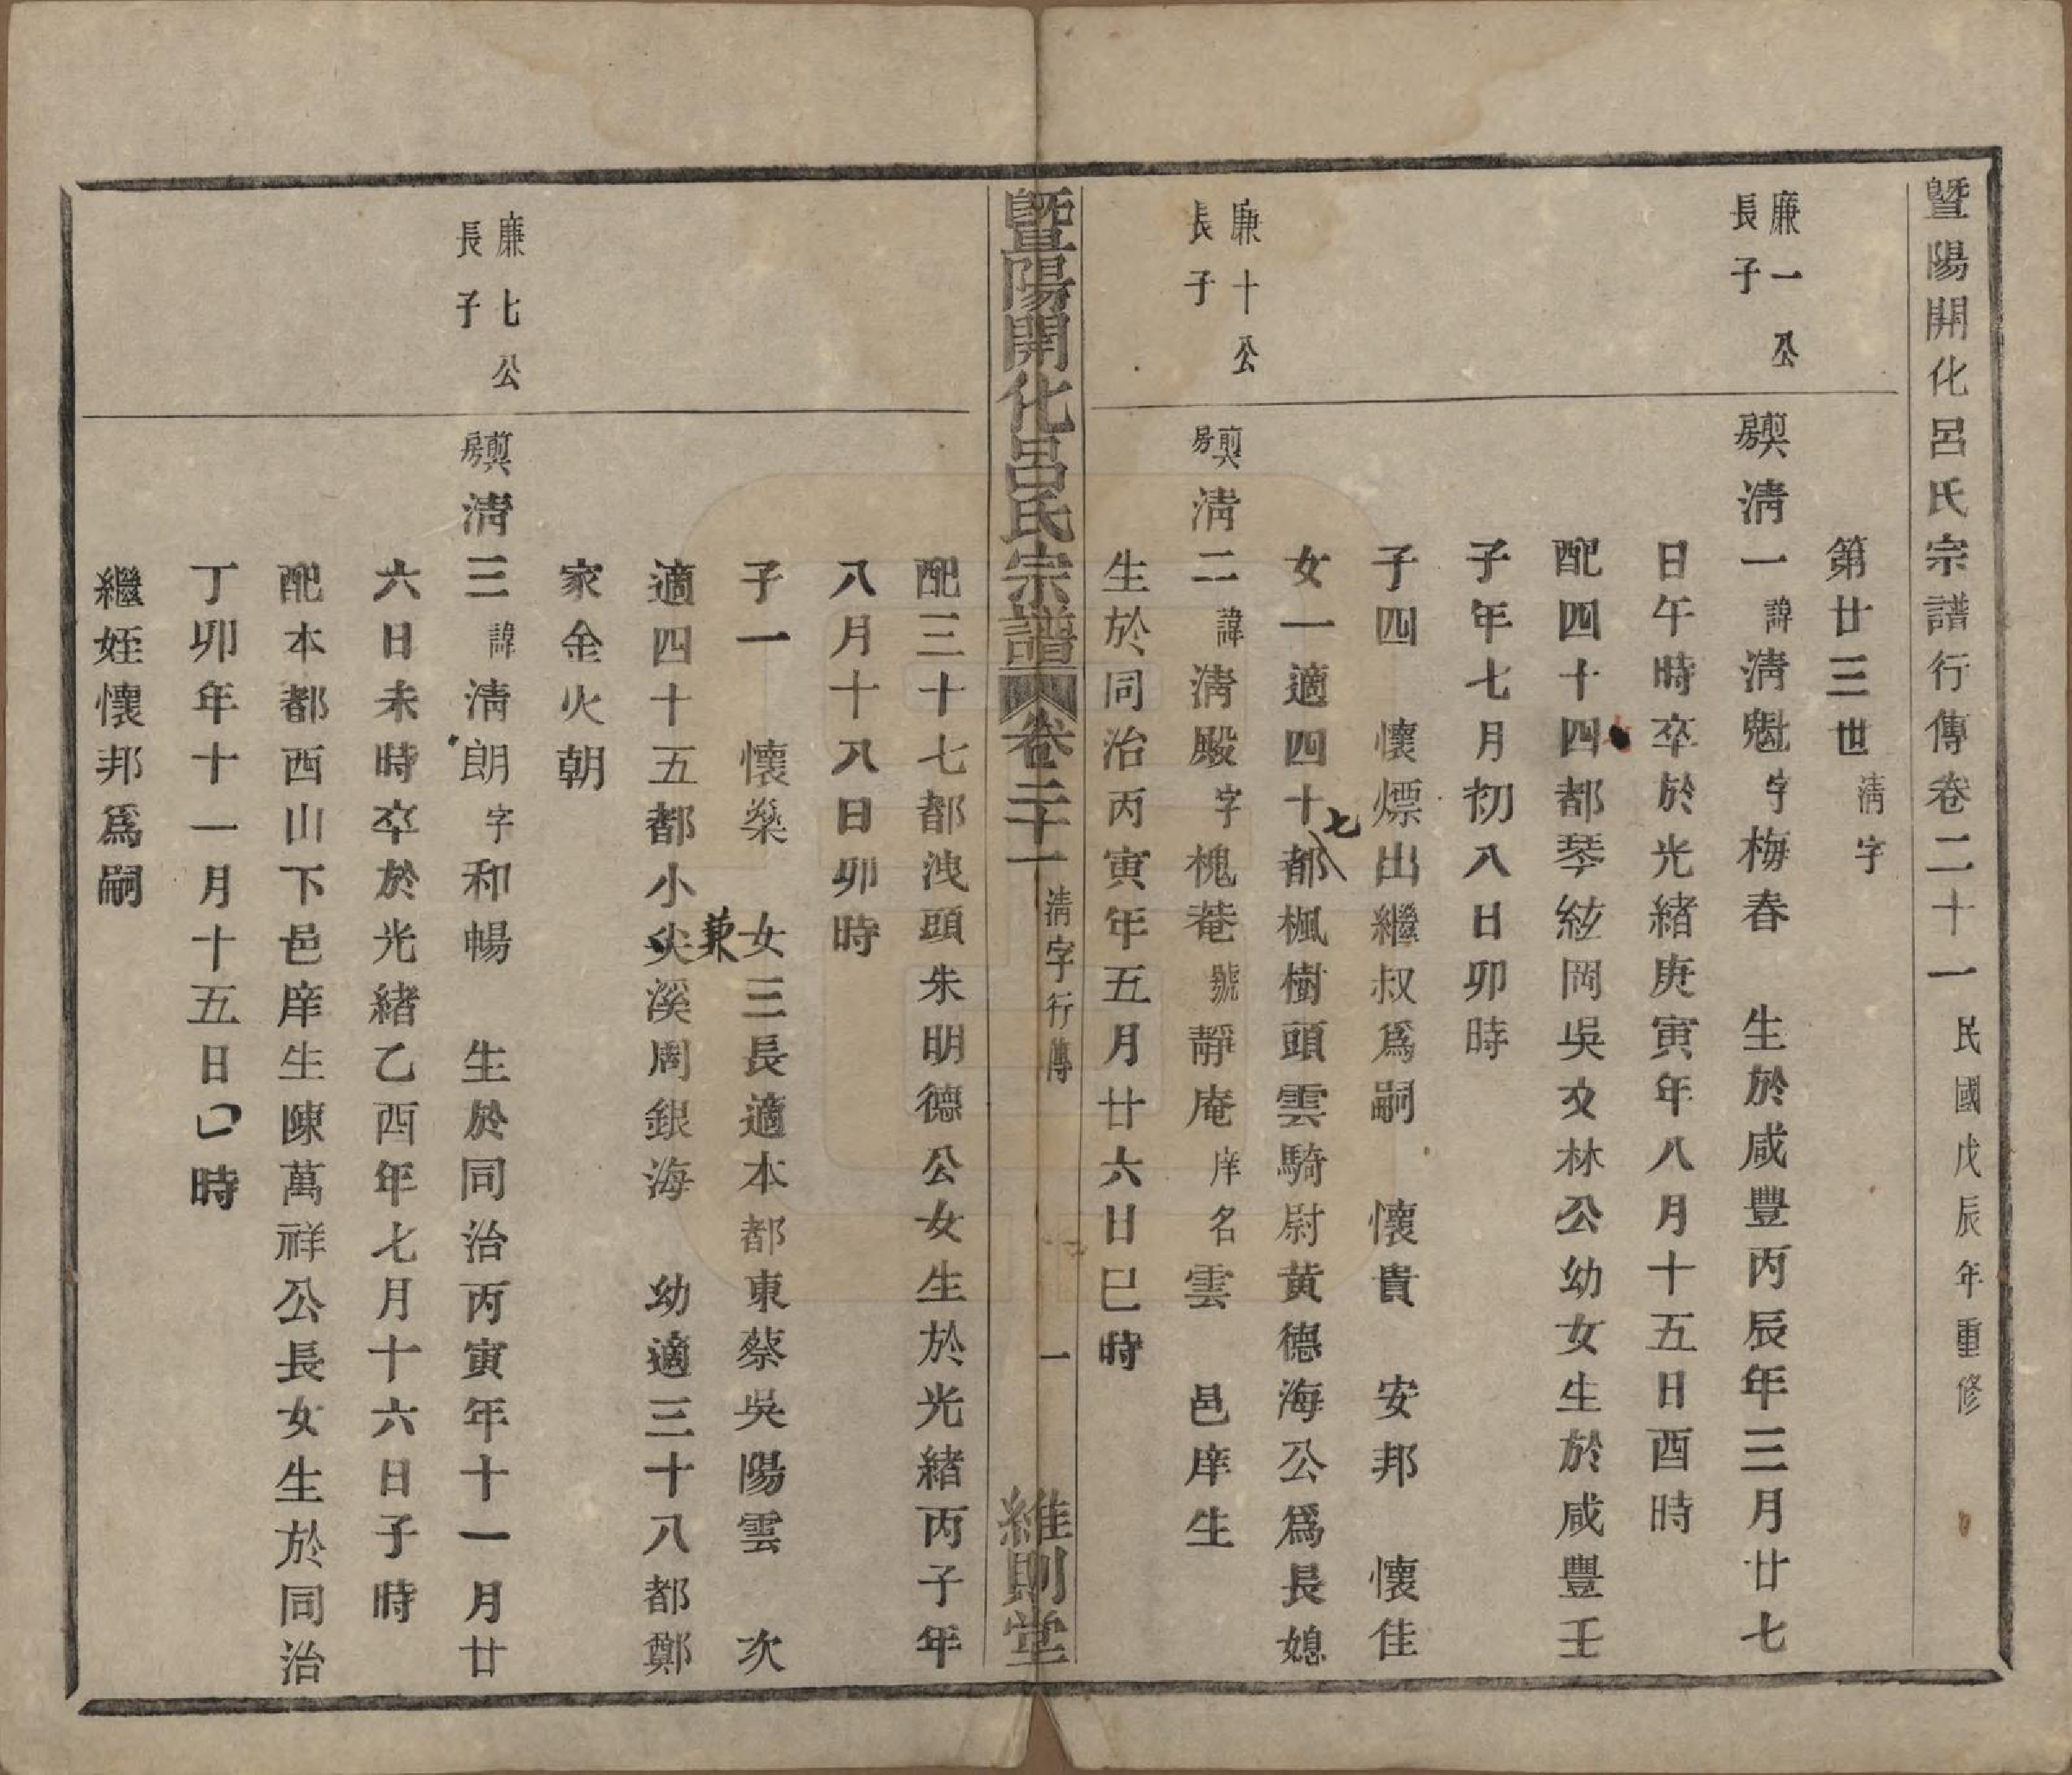 暨陽開化呂氏宗譜行傳卷二十一 民國戊辰年重修
第廿三世 淸字
廉一公
長子
㷼房 淸一 諱淸魁 字梅春 生於咸豐丙辰年三月廿七
日午時卒於光緒庚寅年八月十五日酉時
配四十四都琴絃岡吳文林公幼女生於咸豐壬
子年七月初八日卯時
子四 懷煙出繼叔爲嗣 懷貴 安邦 懷佳
女一適四十七都楓樹頭雲騎尉黃德海公爲長媳
廉十公
長子
㷼房 淸二 諱淸殿 字槐菴 號靜庵 庠名雲 邑庠生
生於同治丙寅年五月廿六日巳時
暨陽開化呂氏宗譜 卷二十一 淸字行傳 一 維則堂
配三十七都洩頭朱明德公女生於光緒丙子年
八月十八日卯時
子一 懷燊 兼 女三長適本都東蔡吳陽雲 次
適四十五都小尖溪周銀海 幼適三十八都鄭
家金火朝
廉七公
長子
㷼房 淸三 諱淸朗 字和暢 生於同治丙寅年十一月廿
六日未時卒於光緒乙酉年七月十六日子時
配本都西山下邑庠生陳萬祥公長女生於同治
丁卯年十一月十五日巳時
繼姪懷邦爲嗣